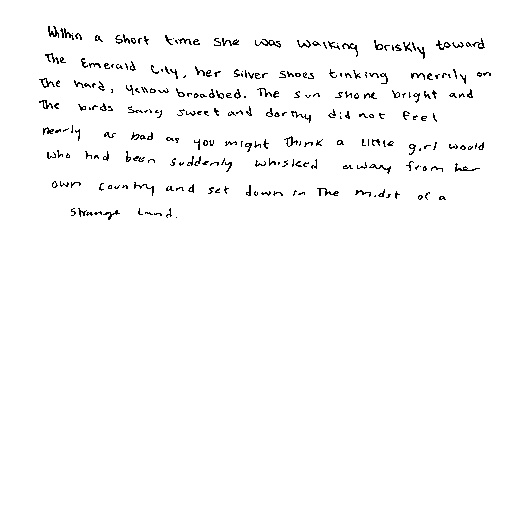 Within a short time she was walking briskly toward
The Emerald City, her silver shoes tinking merrily on
The hard, yellow broadbed. The sun shone bright and
The birds sang sweet and dorthy did not feel
nearly as bad as you might Think a little girl would
who had been suddenly whisked away from her
own country and set down in The midst of a
strange land.